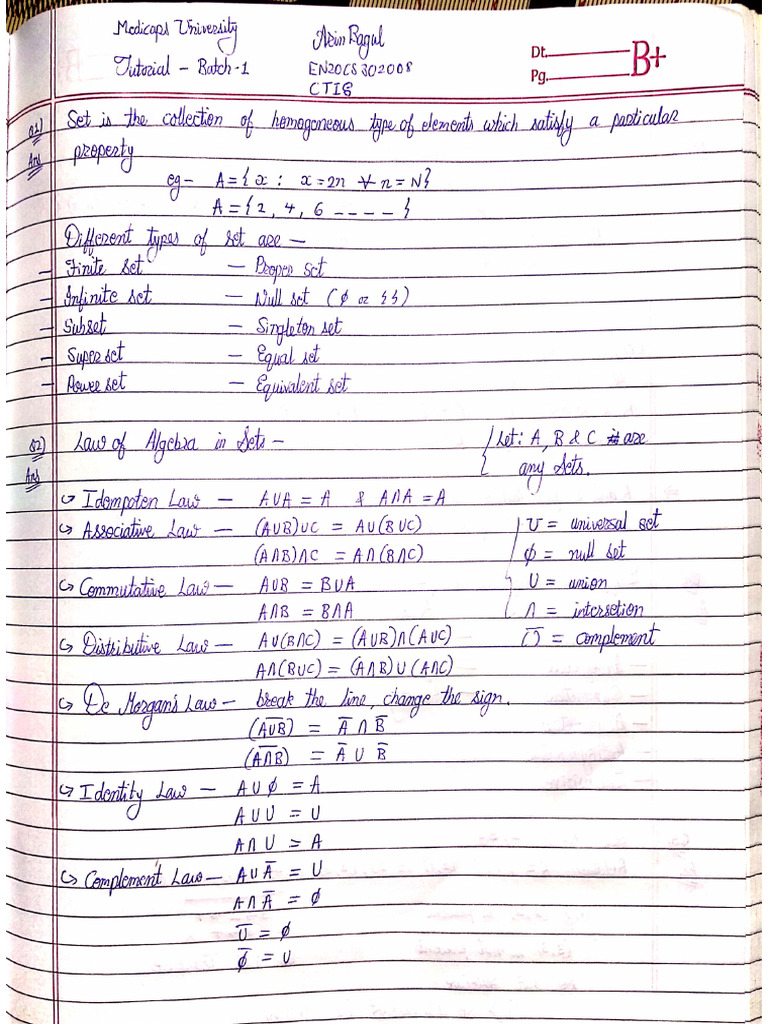 Medicaps University
Tutorial – Batch-1
EN20CS302008
CTIS
Dt.
Pg.
B+
Q1)
Ans
Set is the collection of homogoneous type of elements which satisfy a particular
property
eg- A = { x : x = 2n ∀ n = N}
A = { 2, 4, 6 ---- }
Different types of set are –
– Finite set – Proper set
– Infinite set – Null set (ϕ or {})
– Subset – Singleton set
– Super set – Equal set
– Power set – Equivalent set
Q2)
Ans
Law of Algebra in Sets –
Let: A, B & C are
any sets.
↪ Idempoten Law – A∪A = A & A∩A = A
↪ Associative Law – (A∪B)∪C = A∪(B∪C)
(A∩B)∩C = A∩(B∩C)
↪ Commutative Law – A∪B = B∪A
A∩B = B∩A
U = universal set
ϕ = null set
∪ = union
∩ = intersetion
Ū = complement
↪ Distributive Law – A∪(B∩C) = (A∪B)∩(A∪C)
A∩(B∪C) = (A∩B)∪(A∩C)
↪ De Morgan's Law – break the line, change the sign.
(A̅∪̅B̅) = A̅ ∩ B̅
(A̅∩̅B̅) = A̅ ∪ B̅
↪ Identity Law – A∪ϕ = A
A∪U = U
A∩U = A
↪ Complement Law – A∪A̅ = U
A∩A̅ = ϕ
U̅ = ϕ
ϕ̅ = U